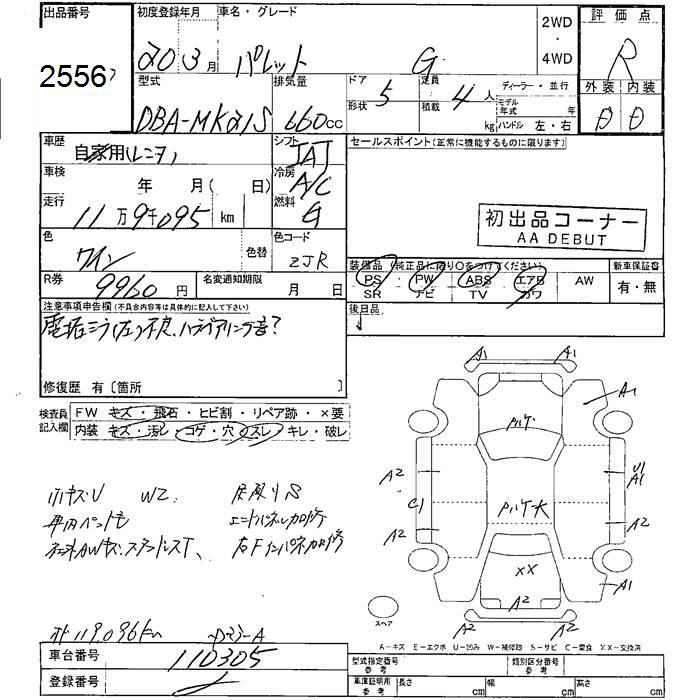 出品番号 初度登録年月 車名・グレード 2WD・4WD 評価点
2556 20 3月 パレット G R
型式 排気量 ドア 形状 5 定員 積載 4人 kg ディーラー・並行 モデル年式 年 ハンドル 左・右 外装 内装
DBA-MK21S 660cc D D
車歴 自家用(レンタ) シフト IAJ セールスポイント(正常に機能するものに限ります)
車検 年 月( 日) 冷房 A/C
走行 11万9千095 km 燃料 G 初出品コーナー
AA DEBUT
色 ワイン 色替 色コード ZJR
装備品(純正品に限り〇をつけてください) 新車保証書
PS PW ABS エアB AW 有・無
SR ナビ TV カワ
R券 9960円 名変通知期限 月 日
後日品
注意事項申告欄(不具合内容等は具体的に記入して下さい)
電格ミラ(左)不良、ハブベアリング音?
修復歴 有〔箇所 〕
検査員記入欄 FW キズ・飛石・ヒビ割・リペア跡・×要
内装 キズ・汚レ・コゲ・穴・スレ・キレ・破レ
A1 A1
A1
A2 U1
A1
C1
A2 A2
XX
A1
A2
A2 A2
W2
スペア
オド119,096km
A-キズ E-エクボ U-凹み W-補修跡 S-サビ C-腐食 XX-交換済
車台番号 110305
登録番号
型式指定番号 参考 類別区分番号 参考
車庫証明用 参考 長さ cm 幅 cm 高さ cm